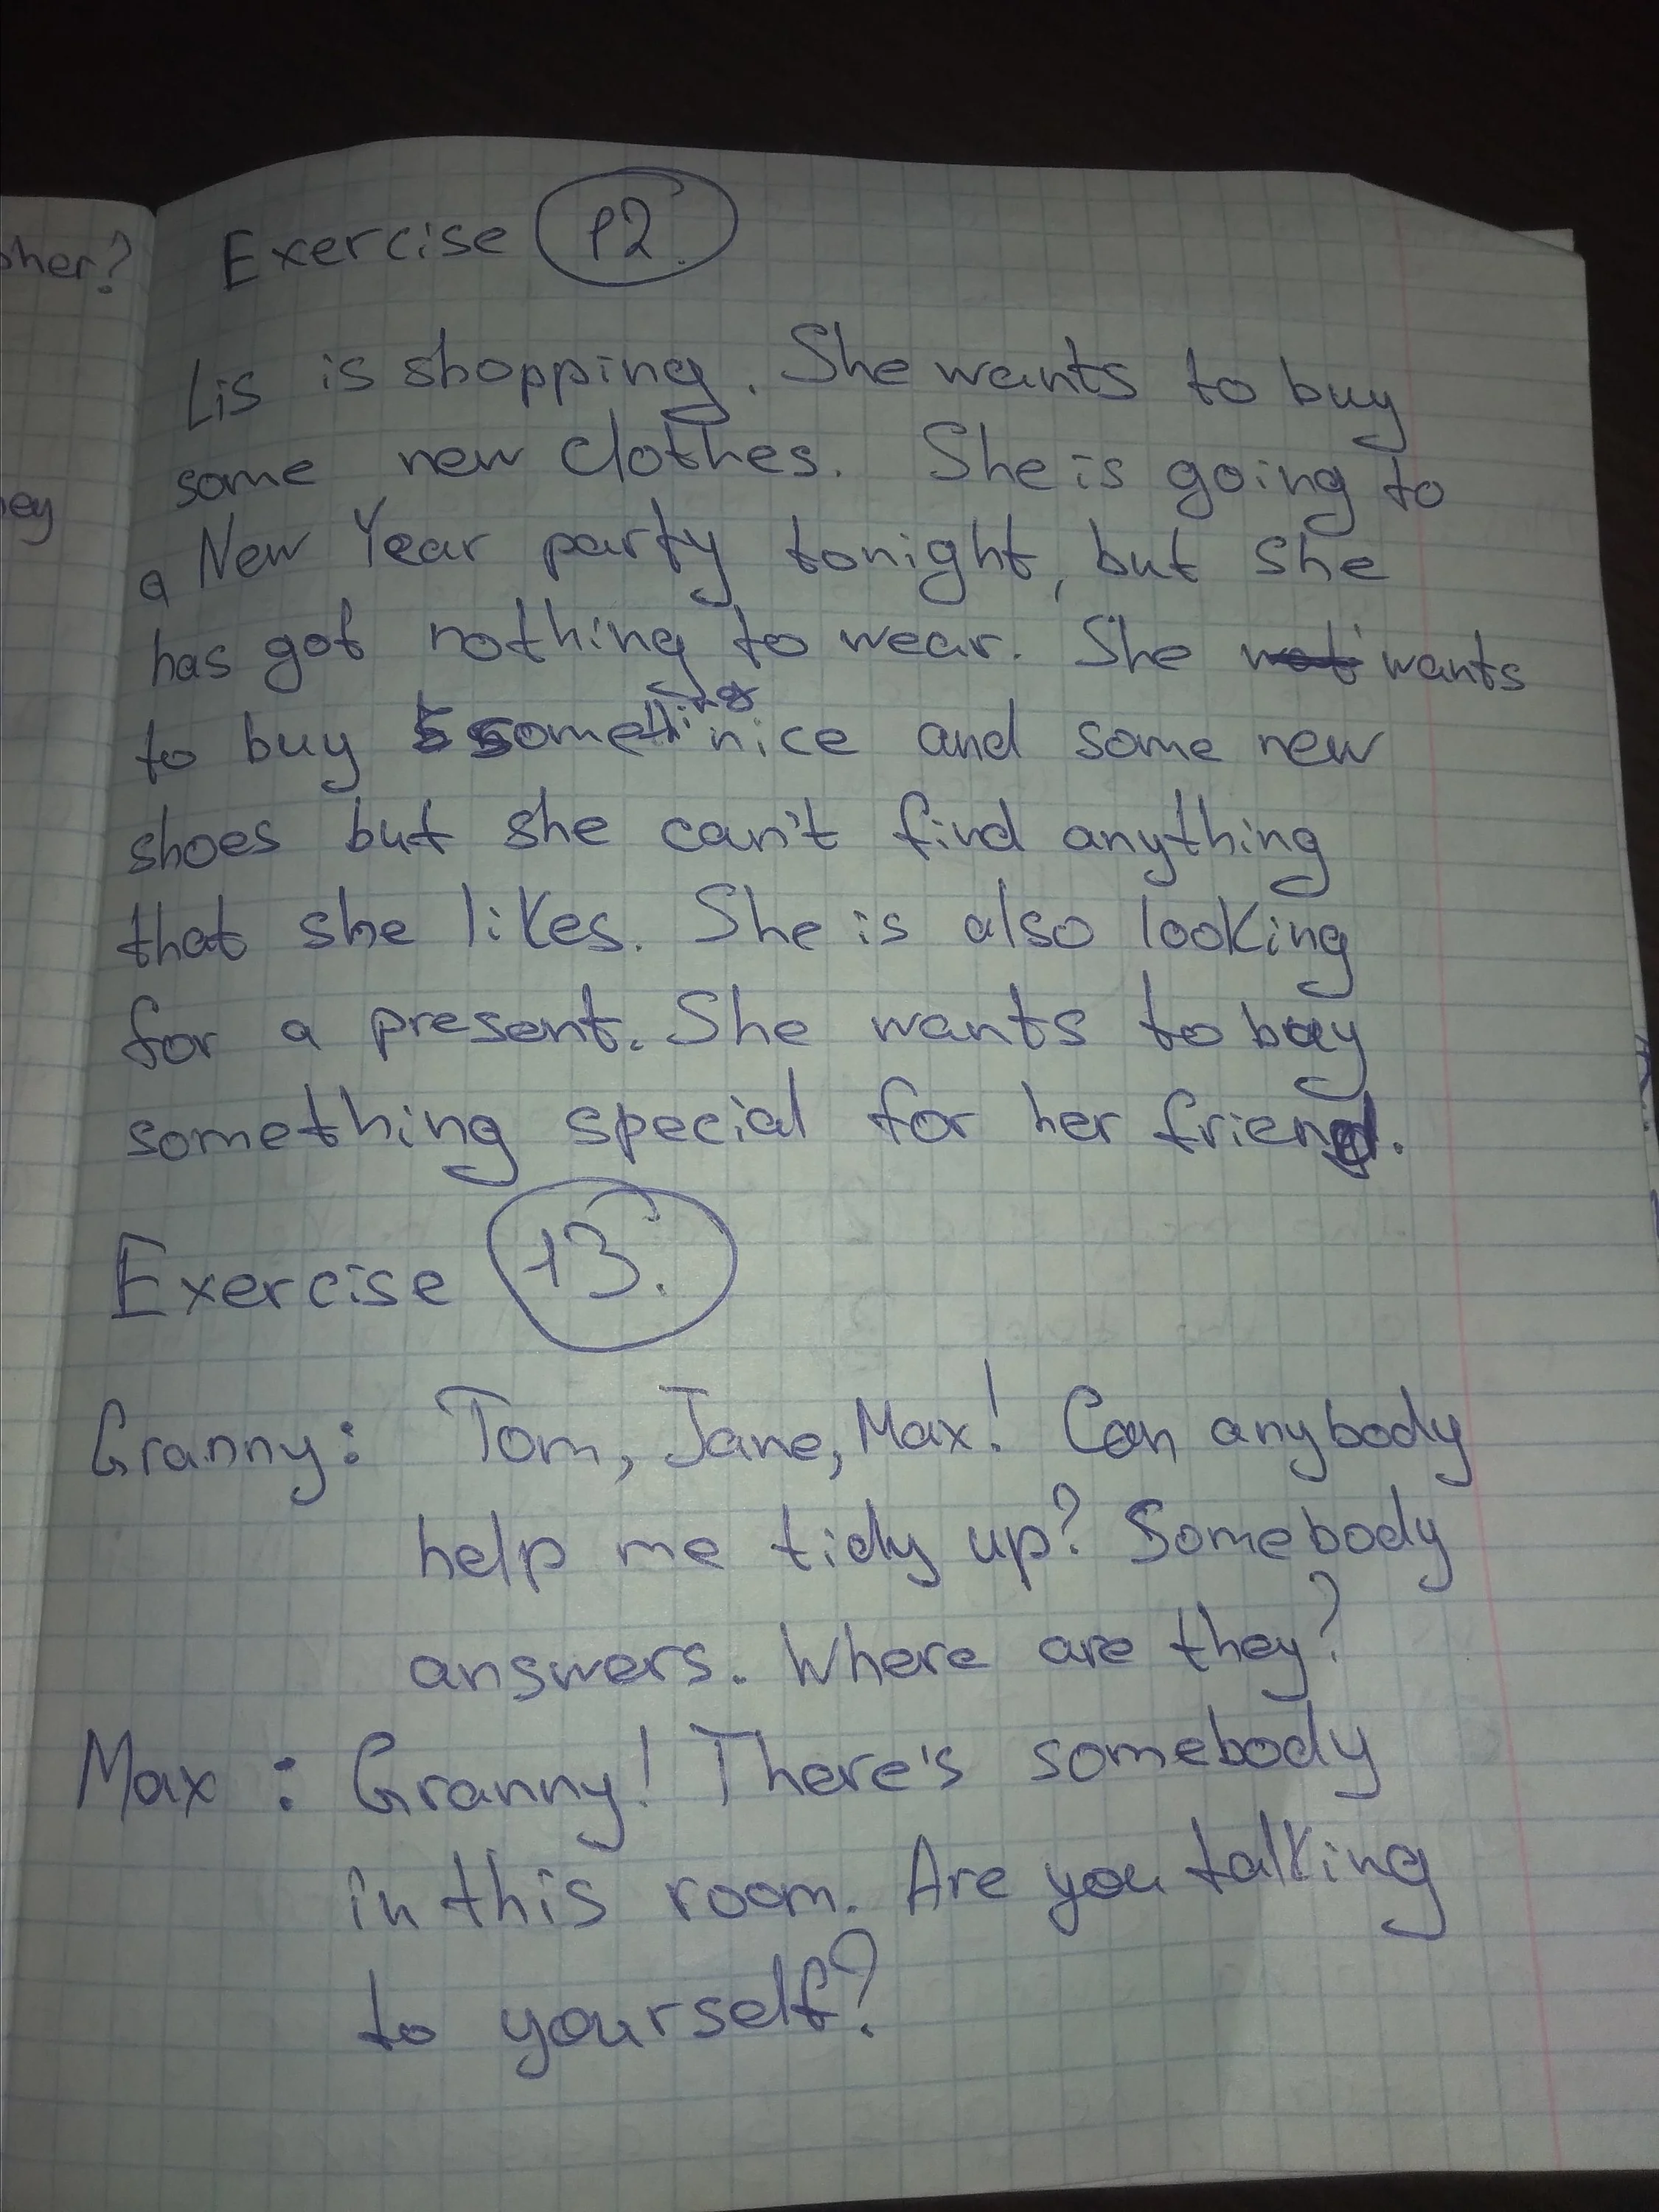 Exercise 12.
Lis is shopping. She wants to buy
some new clothes. She is going to
a New Year party tonight, but she
has got nothing to wear. She wants
to buy something nice and some new
shoes but she can't find anything
that she likes. She is also looking
for a present. She wants to buy
something special for her friend.
Exercise 13.
Granny: Tom, Jane, Max! Can anybody
help me tidy up? Somebody
answers. Where are they?
Max: Granny! There's somebody
in this room. Are you talking
to yourself?